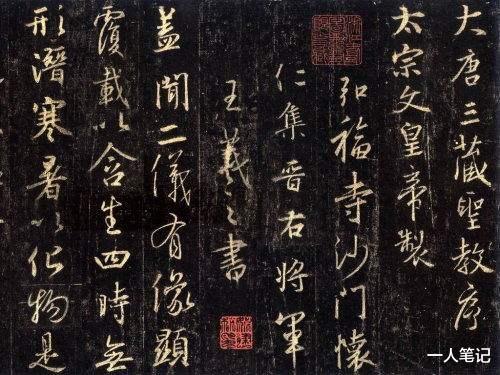 大唐三藏聖教序
太宗文皇帝製
弘福寺沙門懷
仁集晋右將軍
王羲之書
蓋聞二儀有像顯
覆載以含生四時無
形潛寒暑以化物是
一人笔记